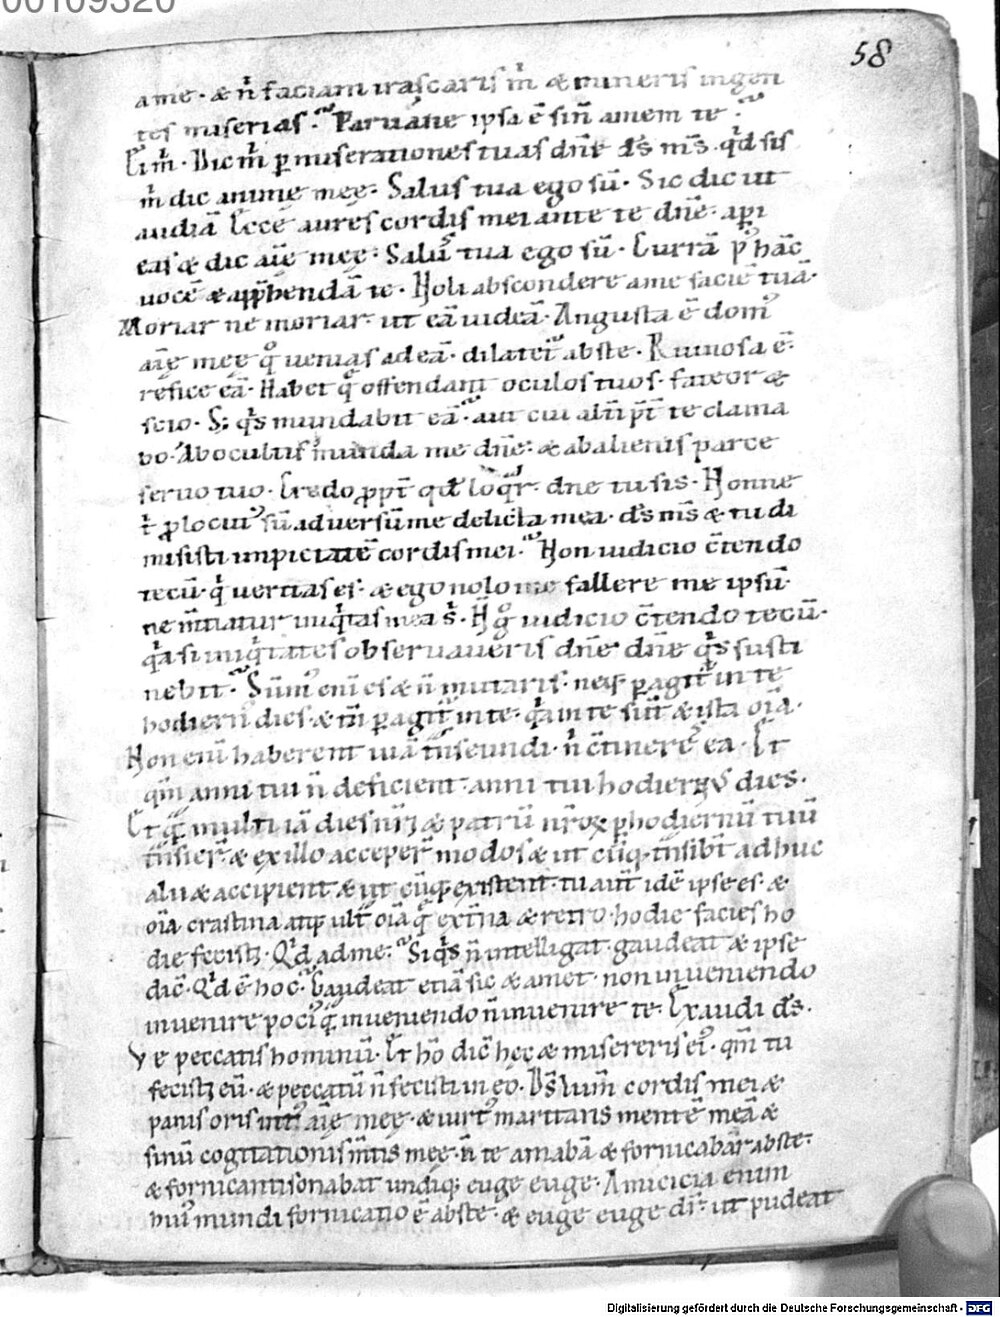 00109320
58
ame · & n̄ faciam irascaris m̄ & mineris ingen
tes miserias · Paruane ipsa ē si n̄ amem te ·
Ei m̄ · Dic m̄ ꝑ miserationes tuas dn̄e d̄s m̄s · qd̄ sis
m̄ dic anime meę · Salus tua ego sū · Sic dic ut
audiā Ecce aures cordis mei ante te dn̄e · apͥ
eas & dic aīę meę · Salꝰ tua ego sū · Currā pꝰ hāc
uocē & app̄hendā te · Noli abscondere a me faciē tuā ·
Moriar ne moriar · ut eā uideā · Angusta ē domꝰ
aīę meę qͦ uenias ad eā · dilatet᷑ abs te · Ruinosa ē ·
refice eā · Habet q̄ offendant oculos tuos · fateor &
scio · S; qͥs mundabit eā · aut cui alt̄i p̄t te clama
bo · Ab occultis munda me dn̄e · & ab alienis parce
seruo tuo · Credo ꝓpt̄ qd̄ loq̊r · dn̄e tu sis · Nonne
t̄ ꝓlocutꝰ sū aduersū me delicta mea · d̄s m̄s & tu di
misisti impietatē cordis mei · Non iudicio c̄tendo
tecū · qͥ ueritas es · & ego nolo me fallere me ipsū ·
ne m̄tiatur iniqͥtas mea s̄ · N̄ gͦ iudicio c̄tendo tecū ·
qͣ si iniqͥtates obseruaueris dn̄e dn̄e qͥs susti
nebit · Sūmꝰ eni es & n̄ mutaris · neqꝫ ꝑagit᷑ in te
hodiernꝰ dies · & tn̄ ꝑagit᷑ in te · qͣ in te sūt & ista oīa ·
Non enī haberent uiā t̄nseundi · n̄ c̄tineres ea · Et
qm̄ anni tui n̄ deficient · anni tui hodiernꝰ dies ·
Et qͣ multi iā dies nr̄i & patrū nr̄oꝝ ꝑ hodiernū tuū
t̄nsier̄ & ex illo acceper̄ modos & ut cūqꝫ t̄nsibt̄ adhuc
alii & accipient & ut cūqꝫ existent · tu aut̄ idē ipse es · &
oīa crastina atqꝫ ult̄ oīa q̄ ext̄na & retro · hodie facies ho
die fecisti · Qͥd ad me · Si qͥs n̄ intelligat gaudeat & ipse
dic̄ · Qͥd ē hoc · Gaudeat etiā sic & amet · non inueniendo
inuenire pociꝰ qͣ inueniendo n̄ inuenire te · Exaudi d̄s ·
Vę peccatis hominū · Et hō dic̄ hęc & misereris eiꝰ · qm̄ tu
fecisti eū · & peccatū n̄ fecisti in eo · D̄s lum̄ cordis mei &
panis oris intꝰ aīę meę · & uirtꝰ maritans mentē meā &
sinū cogitationis m̄tis meę · n̄ te amabā & fornicabar abs te ·
& fornicanti sonabat undiqꝫ euge euge · Amicicia enim
huiꝰ mundi fornicatio ē abs te · & euge euge dr̄ · ut pudeat
Digitalisierung gefördert durch die Deutsche Forschungsgemeinschaft - DFG